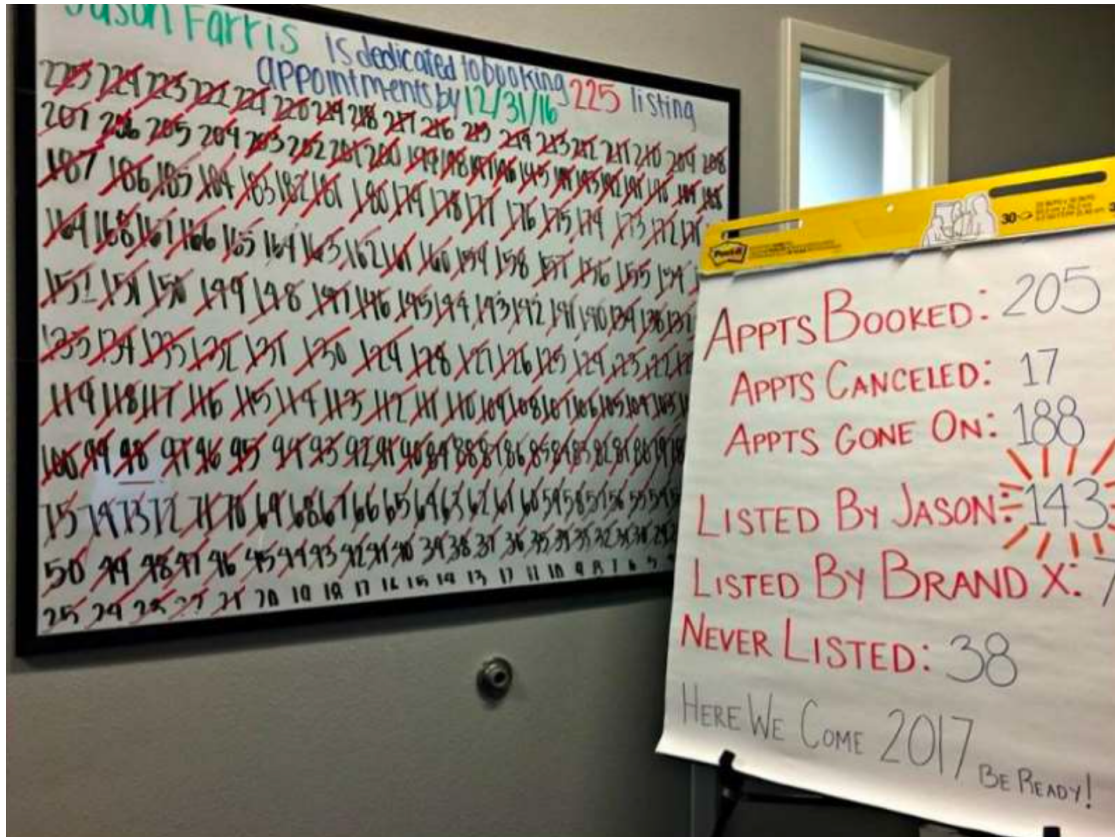 Jason Farris is dedicated to booking 225 listing
appointments by 12/31/16
225 224 223 222 221 220 219 218 217 216 215 214 213 212 211 210 209 208
207 206 205 204 203 202 201 200 199 198 197 196 195 194 193 192 191 190 189 188
187 186 185 184 183 182 181 180 179 178 177 176 175 174 173 172
169 168 167 166 165 164 163 162 161 160 159 158 157 156 155 154
152 151 150 149 148 147 146 145 144 143 142 141 140 139 138 137
135 134 133 132 131 130 129 128 127 126 125 124 123 122
119 118 117 116 115 114 113 112 111 110 109 108 107 106 105 104 103
100 99 98 97 96 95 94 93 92 91 90 89 88 87 86 85 84 83 82 81 80 79
75 74 73 72 71 70 69 68 67 66 65 64 63 62 61 60 59 58 57 56 55 54
50 49 48 47 46 45 44 43 42 41 40 39 38 37 36 35 34 33 32 31 30 29
25 24 23 22 21 20 19 18 17 16 15 14 13 12 11 10 9 8 7 6 5
Post-it
30
APPTS BOOKED: 205
APPTS CANCELED: 17
APPTS GONE ON: 188
LISTED BY JASON: 143
LISTED BY BRAND X: 7
NEVER LISTED: 38
HERE WE COME 2017
BE READY!